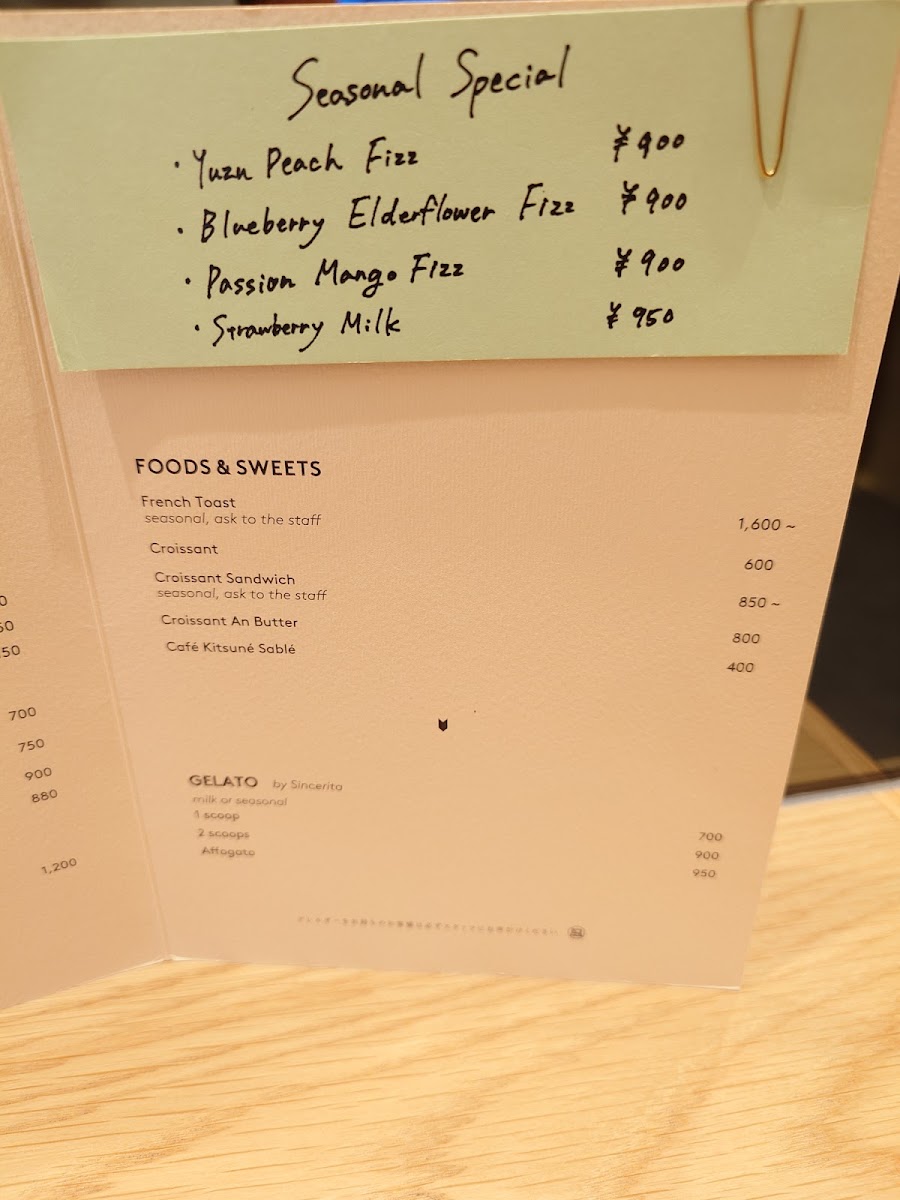 Seasonal Special
・Yuzu Peach Fizz ¥900
・Blueberry Elderflower Fizz ¥900
・Passion Mango Fizz ¥900
・Strawberry Milk ¥950
FOODS & SWEETS
French Toast 1,600 ~
seasonal, ask to the staff
Croissant 600
Croissant Sandwich 850 ~
seasonal, ask to the staff
Croissant An Butter 800
Café Kitsuné Sablé 400
GELATO by Sincerita
milk or seasonal
1 scoop 700
2 scoops 900
Affogato 950
700
750
900
880
1,200